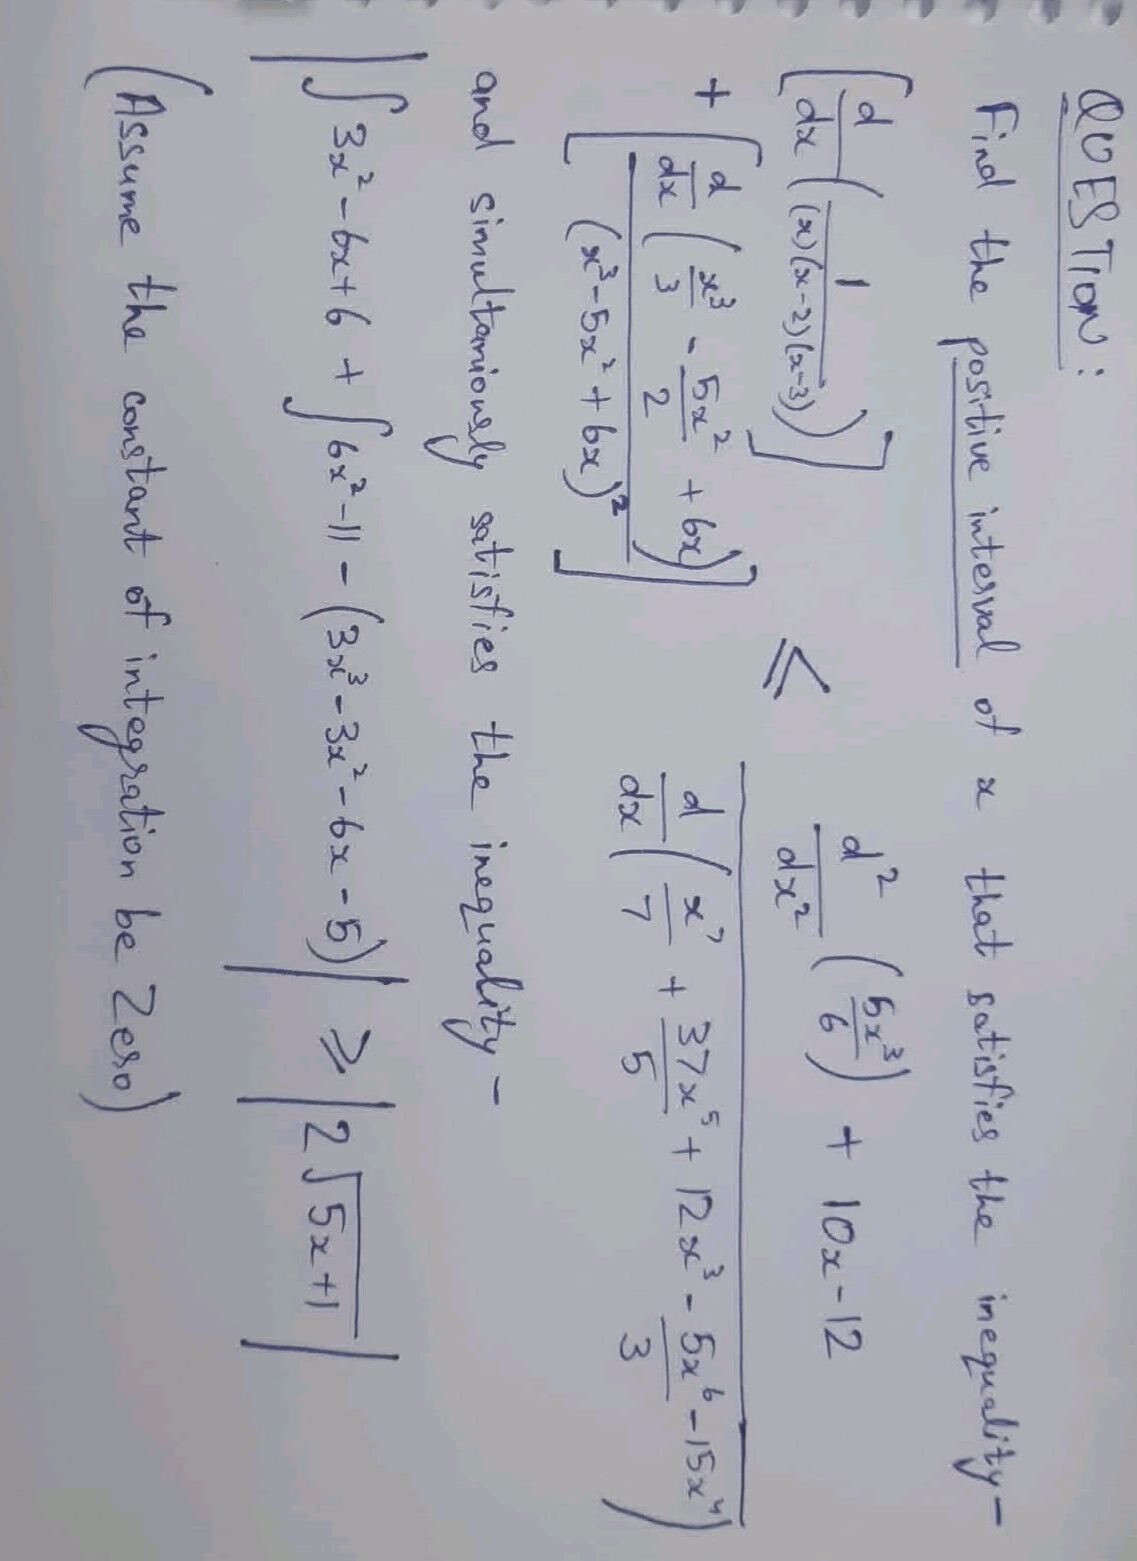 QUESTION:
Find the positive interval of x that satisfies the inequality-
[d/dx (1/((x)(x-2)(x-3)))]
+ [d/dx (x³/3 - 5x²/2 + 6x) / (x³-5x²+6x)²] ≤ (d²/dx² (5x³/6) + 10x-12) / (d/dx (x⁷/7 + 37x⁵/5 + 12x³ - 5x⁶/3 - 15x⁴))
and simultaniously satisfies the inequality-
|∫3x²-6x+6 + ∫6x²-11 - (3x³-3x²-6x-5)| ≥ |2√5x+1|
(Assume the constant of integration be Zero)